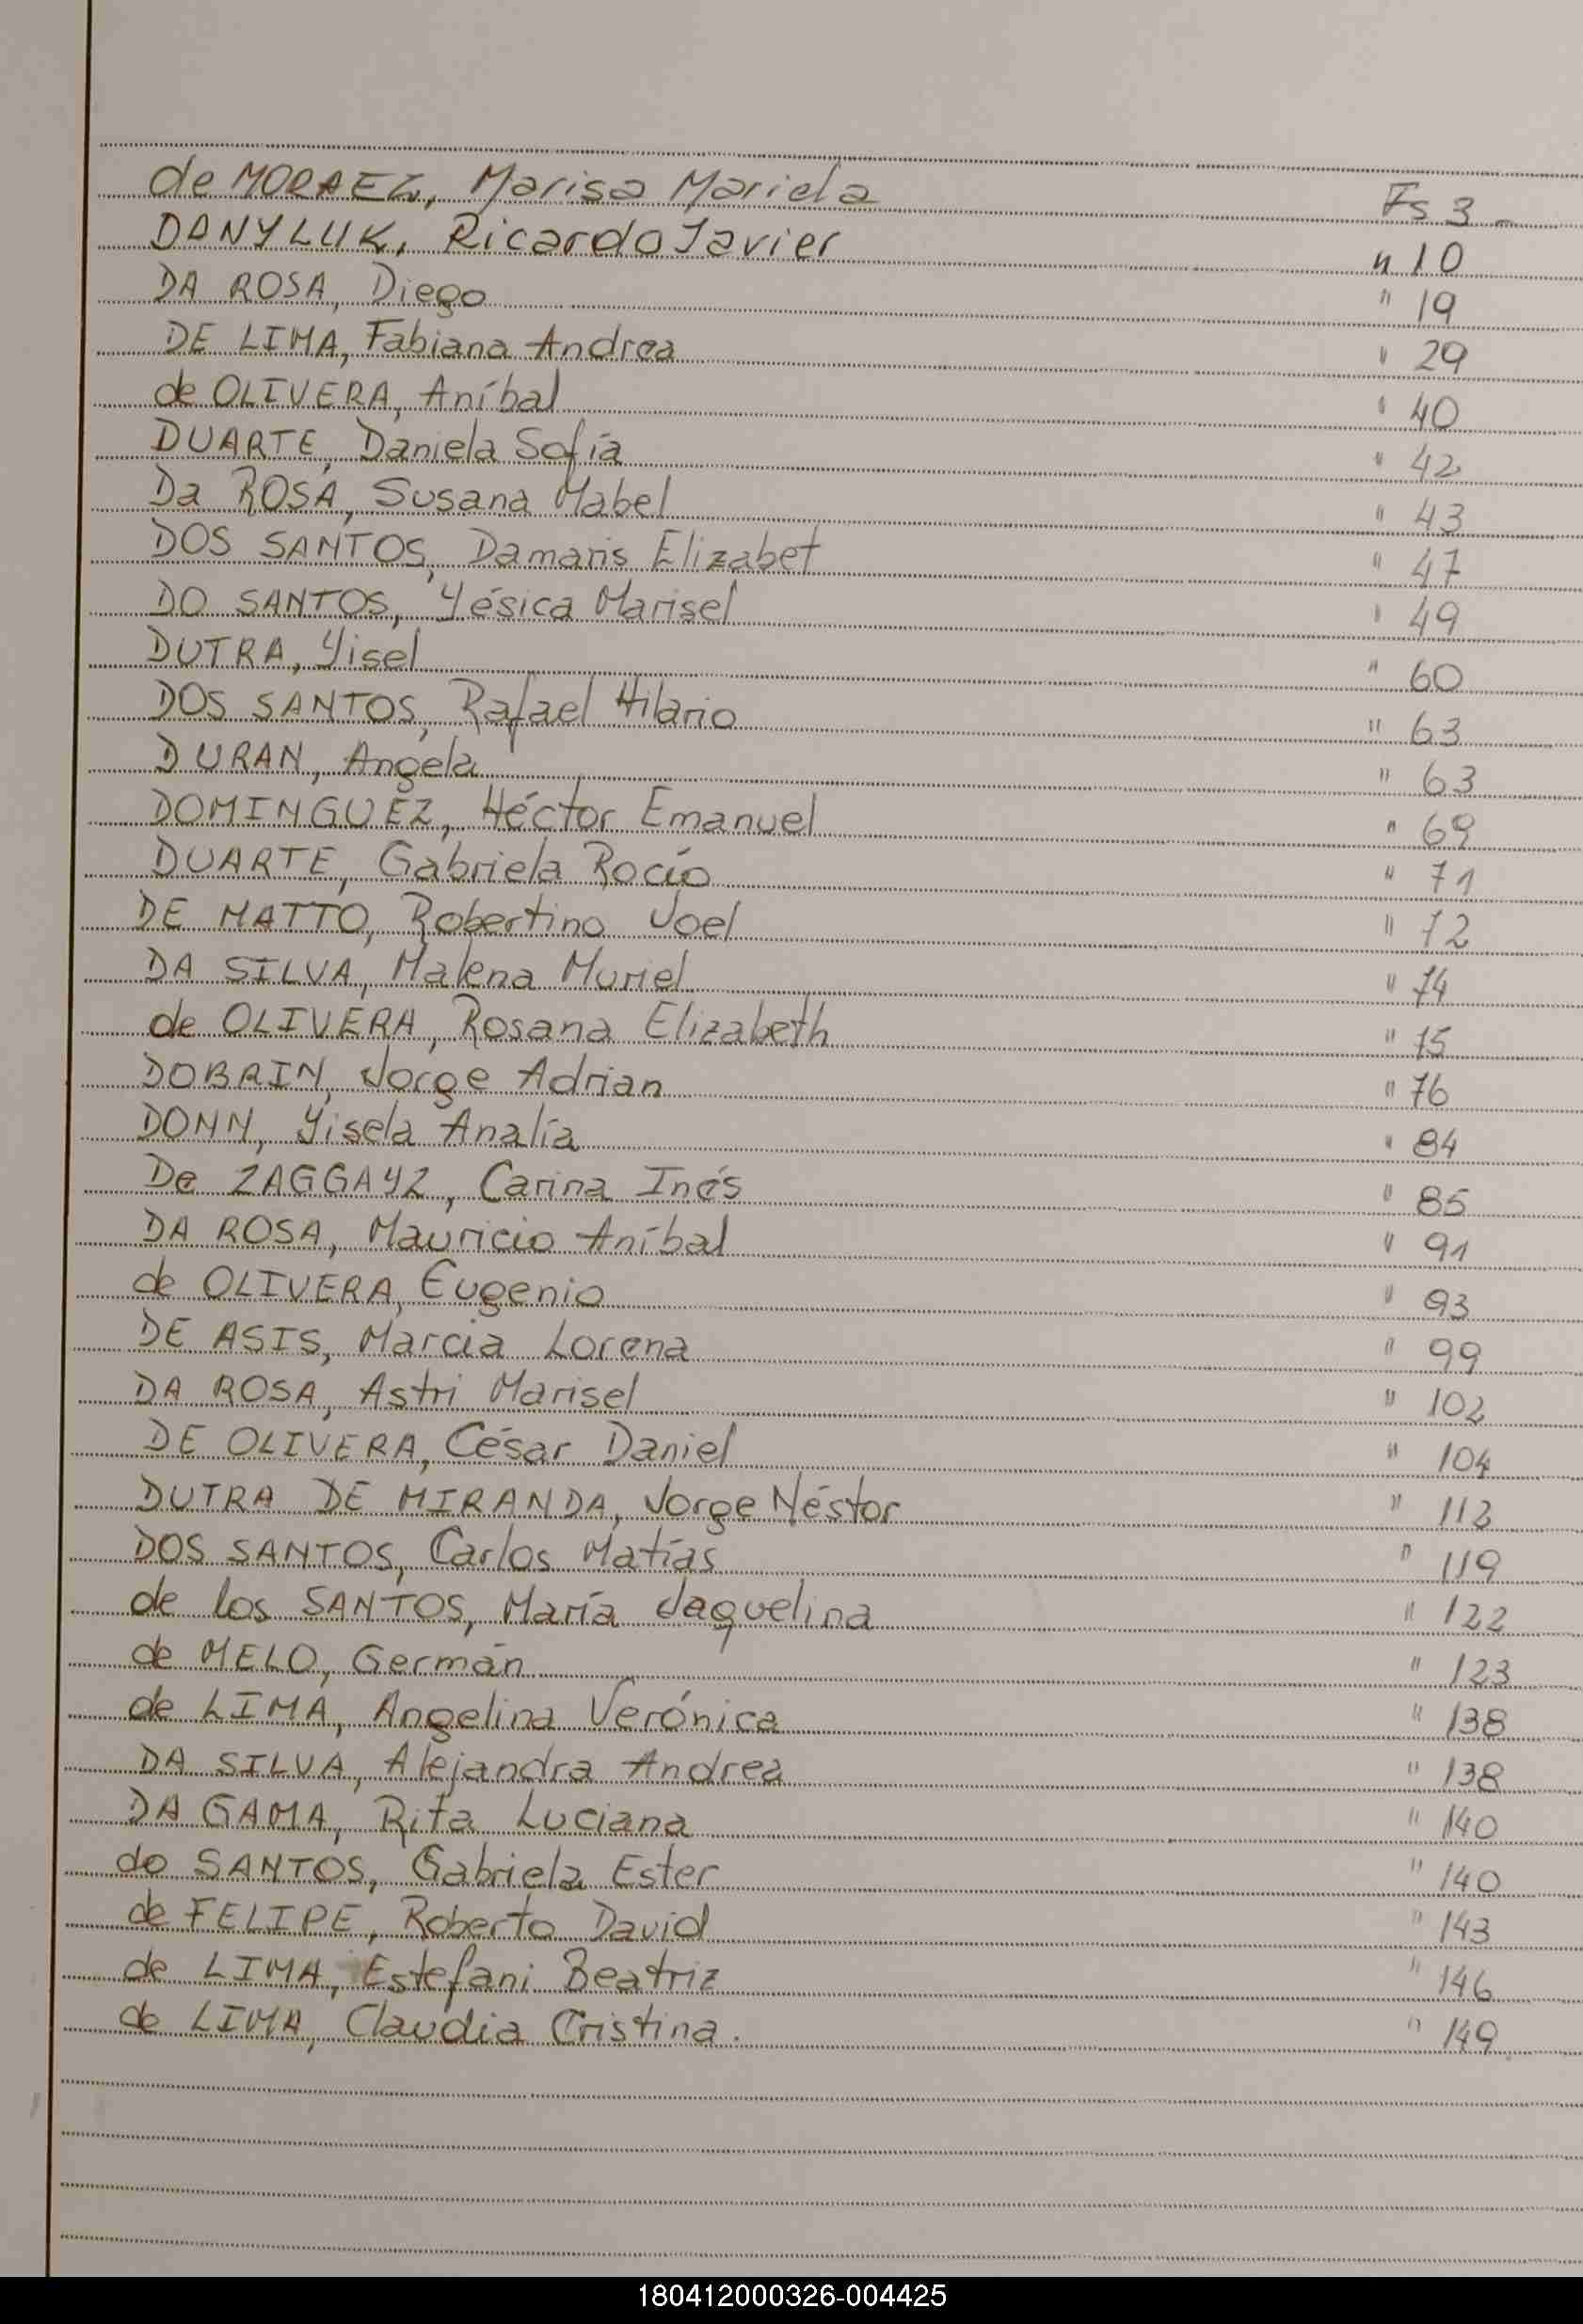 de MORAEZ, Marisa Mariela Fs 3 -
DANYLUK, Ricardo Javier " 10
DA ROSA, Diego " 19
DE LIMA, Fabiana Andrea " 29
de OLIVERA, Aníbal " 40
DUARTE, Daniela Sofía " 42
Da ROSA, Susana Mabel " 43
DOS SANTOS, Damaris Elizabet " 47
DO SANTOS, Yésica Marisel " 49
DUTRA, Yisel " 60
DOS SANTOS, Rafael Hilario " 63
DURAN, Angela " 63
DOMINGUEZ, Héctor Emanuel " 69
DUARTE, Gabriela Rocío " 71
DE MATTO, Robertino Joel " 72
DA SILVA, Malena Muriel " 74
de OLIVERA, Rosana Elizabeth " 75
DOBRIN, Jorge Adrian " 76
DONN, Yisela Analía " 84
De ZAGGAYZ, Carina Inés " 85
DA ROSA, Mauricio Aníbal " 91
de OLIVERA, Eugenio " 93
DE ASIS, Marcia Lorena " 99
DA ROSA, Astri Marisel " 102
DE OLIVERA, César Daniel " 104
DUTRA DE MIRANDA, Jorge Néstor " 112
DOS SANTOS, Carlos Matías " 119
de los SANTOS, María Jaquelina " 122
de MELO, Germán " 123
de LIMA, Angelina Verónica " 138
DA SILVA, Alejandra Andrea " 138
DA GAMA, Rita Luciana " 140
do SANTOS, Gabriela Ester " 140
de FELIPE, Roberto David " 143
de LIMA, Estefani Beatriz " 146
de LIMA, Claudia Cristina. " 149.
180412000326-004425